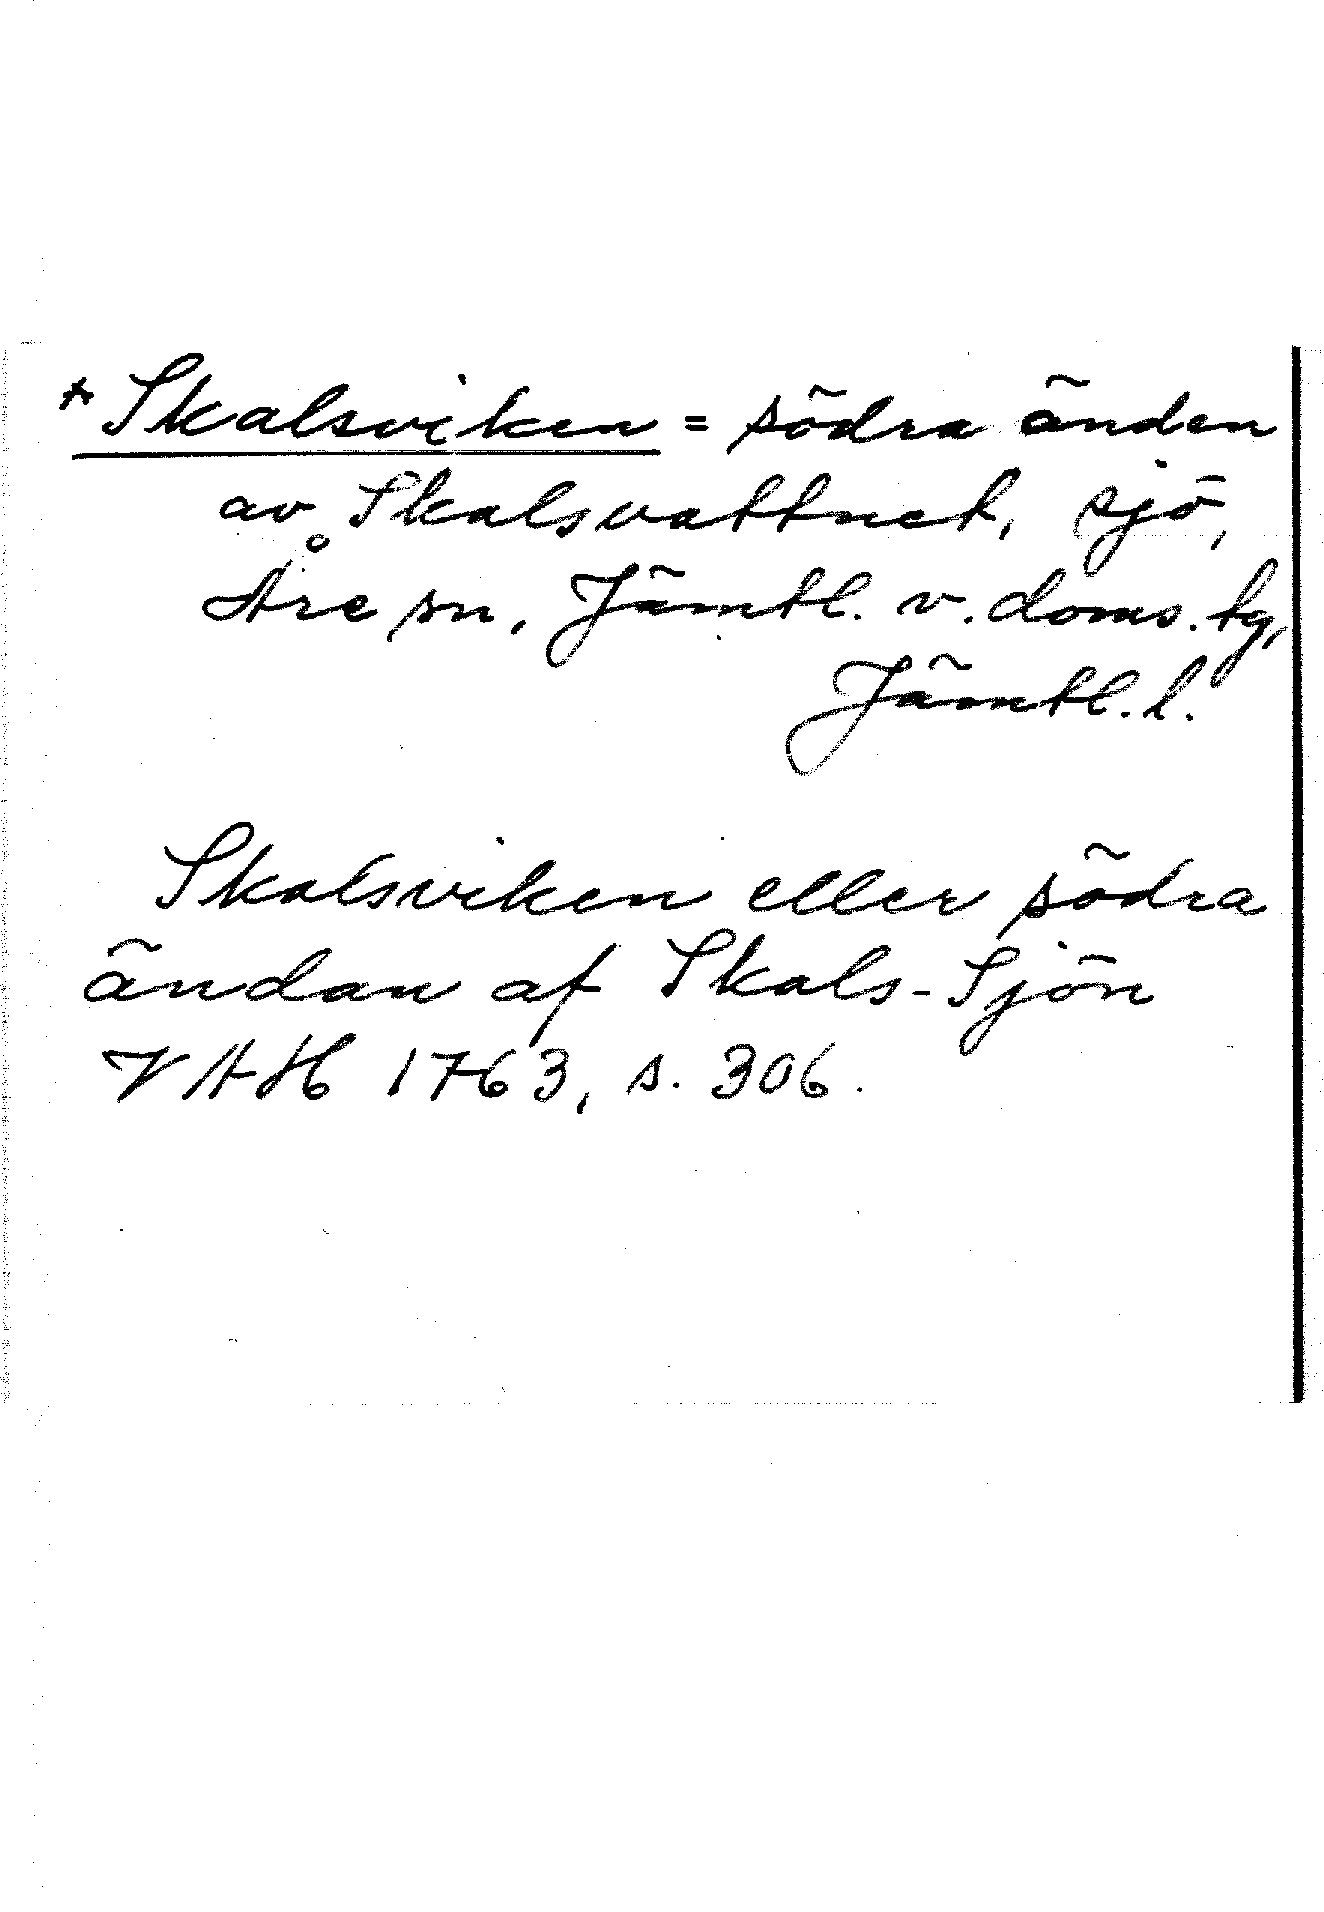 * Skalsviken = södra änden
av Skalsvattnet, sjö,
Åre sn, Jämtl. v. doms. tg,
Jämtl. l.
Skalsviken eller södra
ändan af Skals-Sjön
VAH 1763, s. 306.